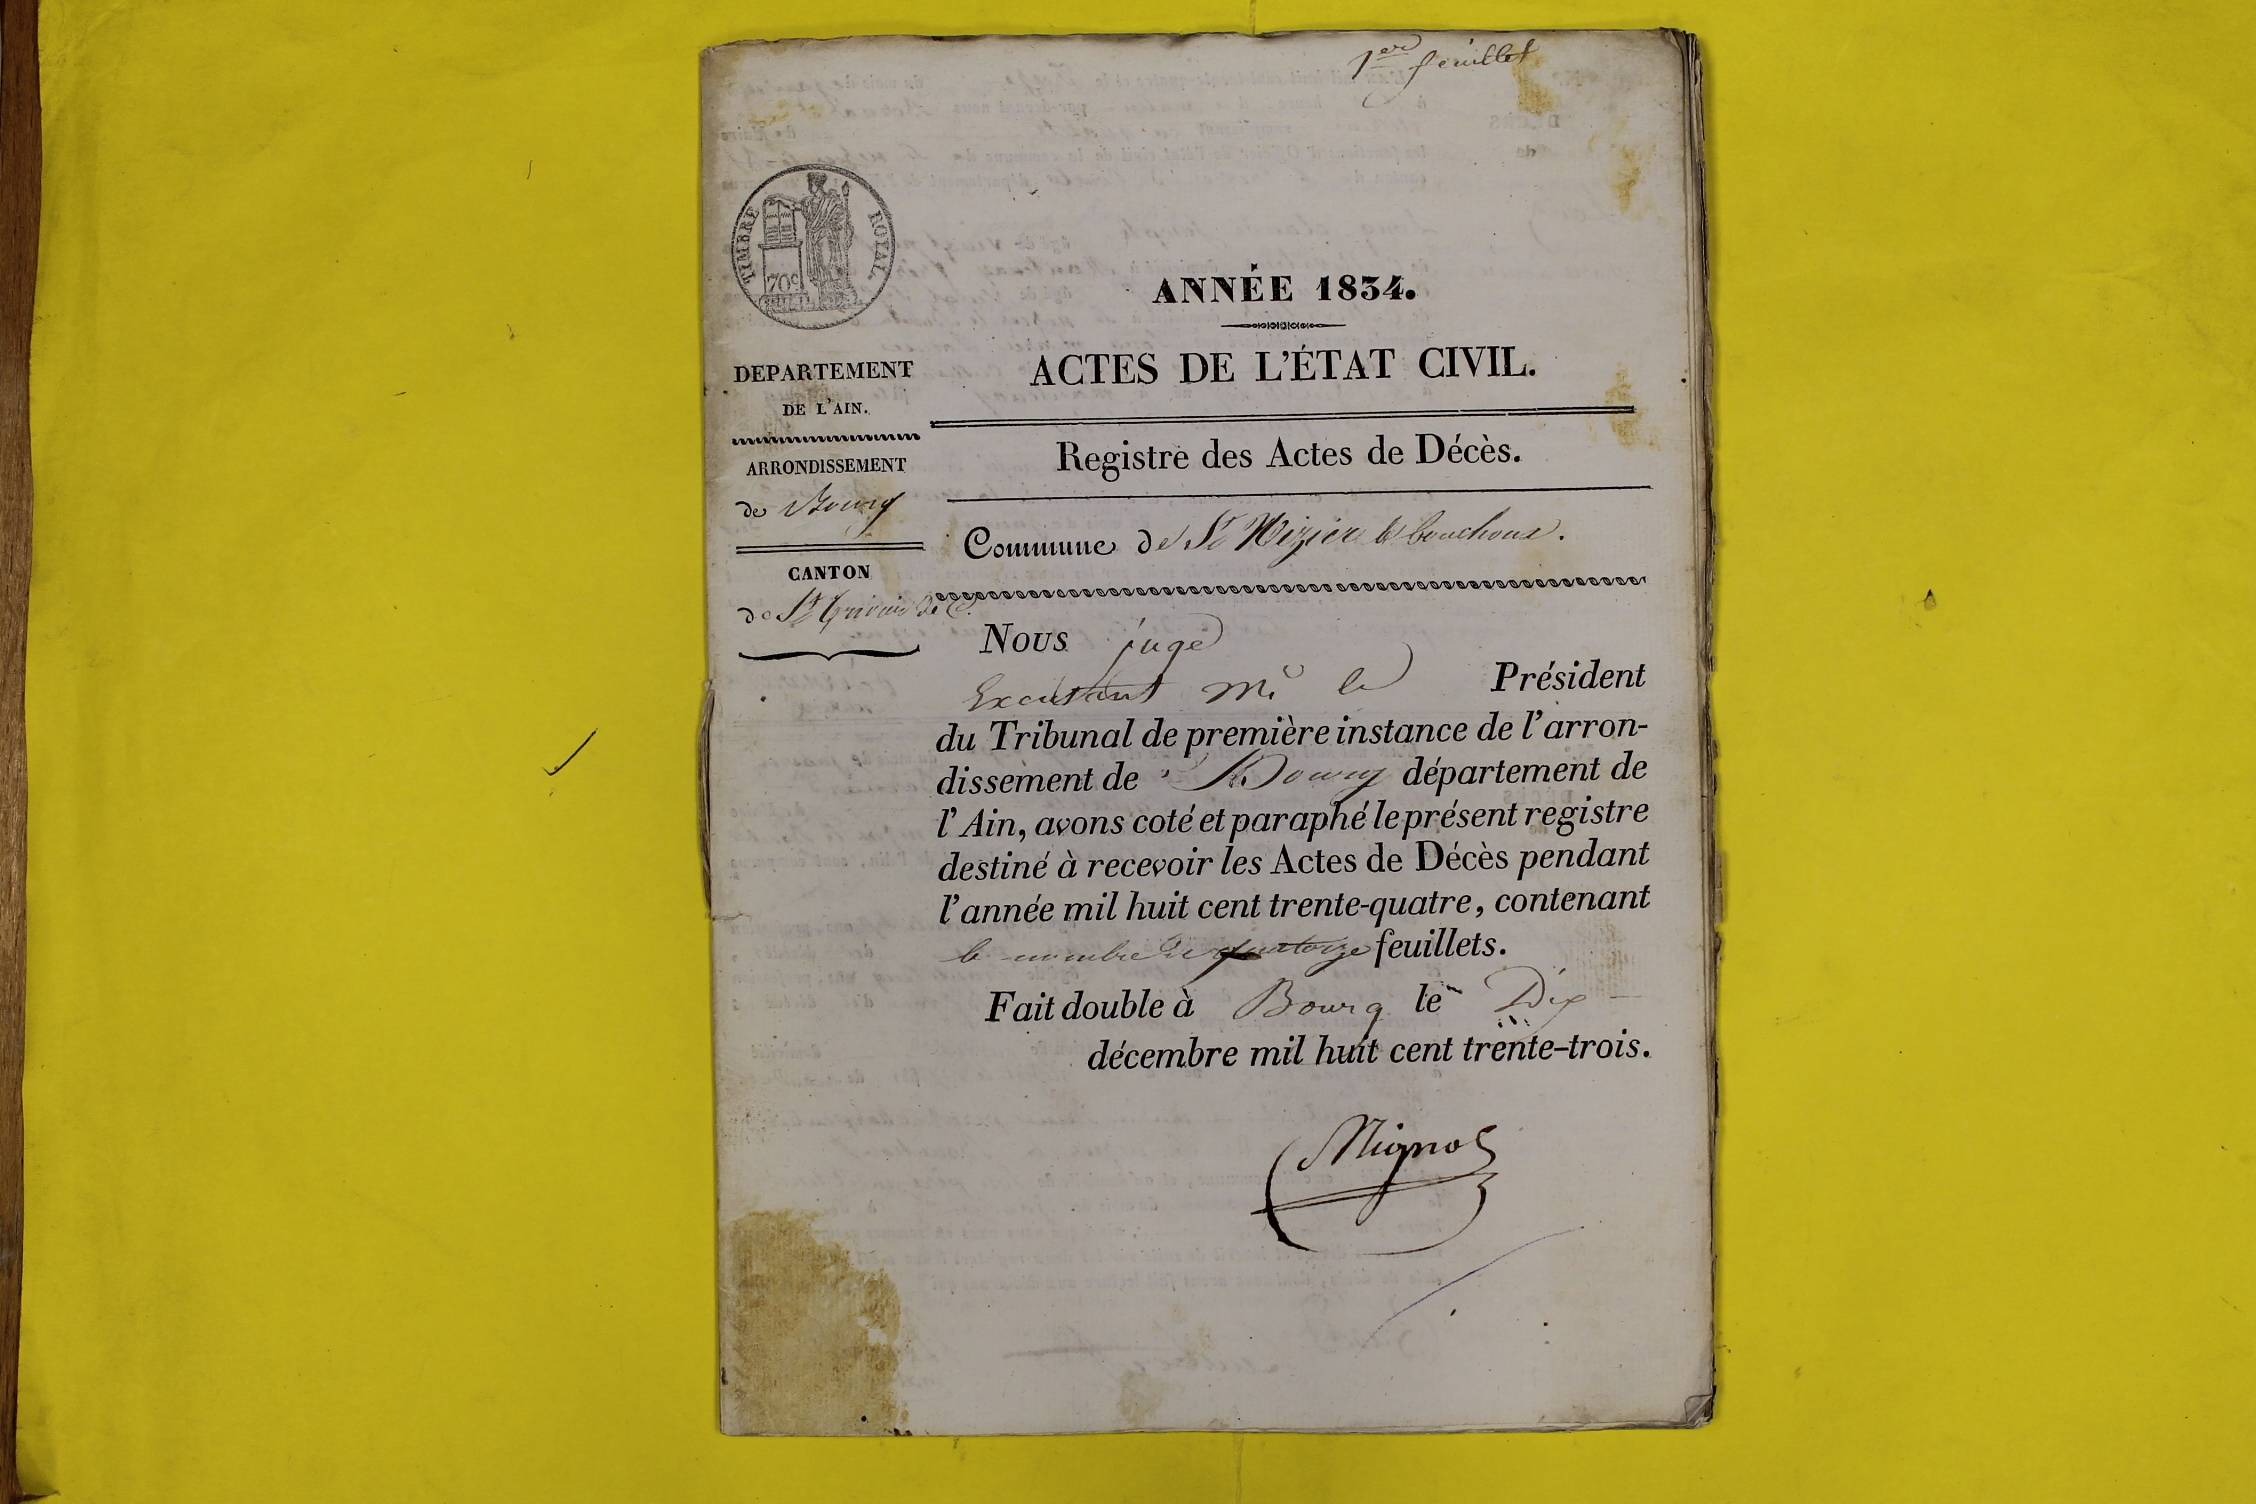 1er feuillet
TIMBRE ROYAL
70c
ANNÉE 1834.
DEPARTEMENT
DE L'AIN.
ARRONDISSEMENT
de Bourg
CANTON
de St Trivier de C.
ACTES DE L'ÉTAT CIVIL.
Registre des Actes de Décès.
Commune de St Nizier le bouchoux.
Nous juge
Excusant Mr le Président
du Tribunal de première instance de l'arron-
dissement de Bourg département de
l'Ain, avons coté et paraphé le présent registre
destiné à recevoir les Actes de Décès pendant
l'année mil huit cent trente-quatre, contenant
le nombre de quatorze feuillets.
Fait double à Bourg le Dix
décembre mil huit cent trente-trois.